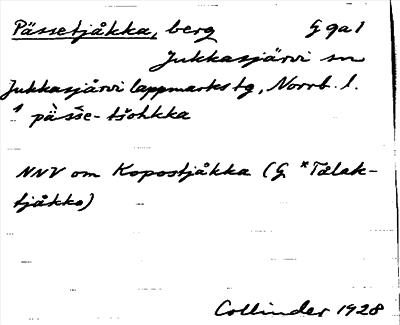 Pässetjåkka, berg G 9a1
Jukkasjärvi sn
Jukkasjärvi lappmarks tg, Norrb. l.
¹ pàs̄s̄e-tšohkka
NNV om Kopostjåkka (G *Tålak-
tjåkko)
Collinder 1928